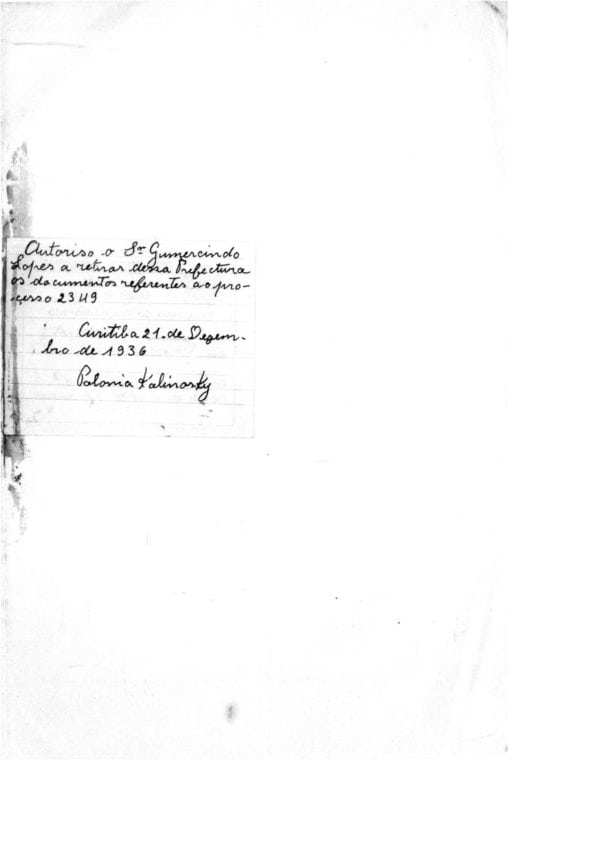 Autoriso o Sr Gumercindo
Lopes a retirar dessa Prefectura
os documentos referentes ao pro-
-cesso 2349
Curitiba 21 de Dezem-
bro de 1936
Polonia Kalinosky